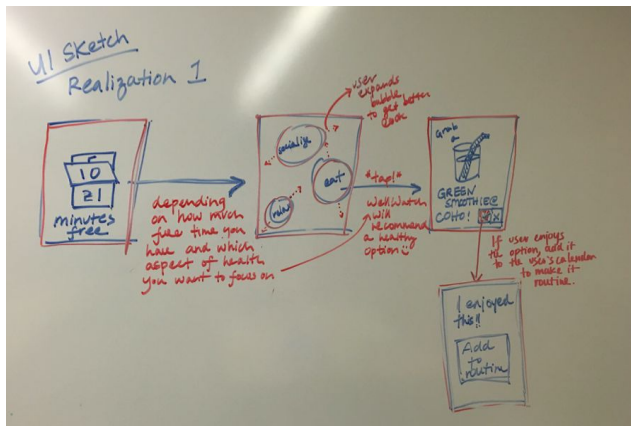 UI Sketch
Realization 1
10
21
minutes
free
depending
on how much
free time you
have and which
aspect of health
you want to focus on
socialize
eat
relax
user
expands
bubble
to get better
look
*tap!*
WellWatch
will
recommend
a healthy
option
Grab
a
GREEN
SMOOTHIE@
COHO!
If user enjoys
the option, add it
to the user's calendar
to make it
routine.
I enjoyed
this!!
Add
to
routine